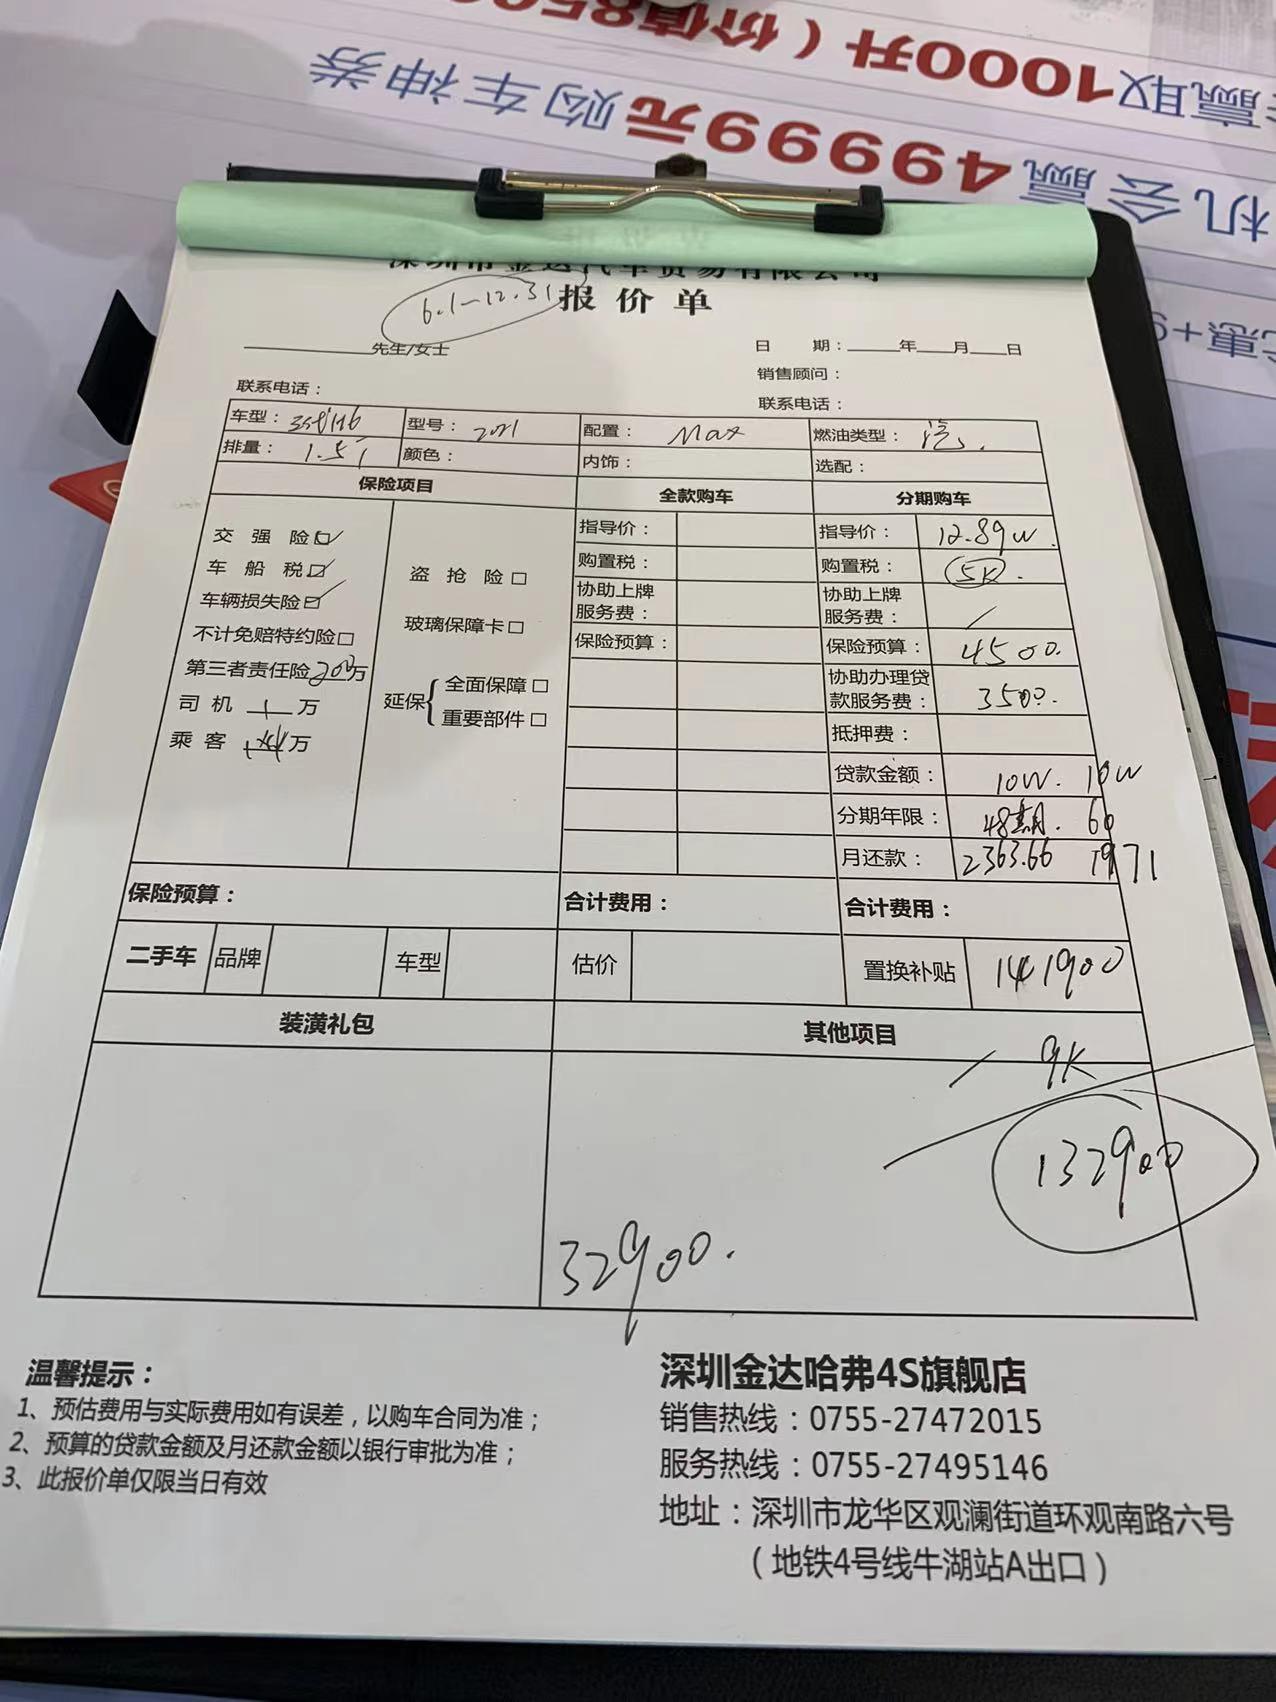 赢取1000升（价值850
机会赢49999元购车神券
惠+9
深圳市金达汽车贸易有限公司
6.1-12.31
报价单
先生/女士
日 期： 年 月 日
销售顾问：
联系电话：
联系电话：
车型： H6 型号： 2021 配置： Max 燃油类型： 汽.
排量： 1.5T 颜色： 内饰： 选配：
保险项目 全款购车 分期购车
交强险☑
车船税☑
车辆损失险☑
不计免赔特约险□
第三者责任险200万
司机 1 万
乘客 万
盗抢险□
玻璃保障卡□
延保{ 全面保障□
重要部件□
指导价：
购置税：
协助上牌
服务费：
保险预算：
指导价： 12.89W.
购置税： 5K.
协助上牌
服务费： /
保险预算： 4500.
协助办理贷
款服务费： 3500.
抵押费：
贷款金额： 10W. 10W
分期年限： 48期. 60
月还款： 2363.66 1971
保险预算： 合计费用： 合计费用：
二手车 品牌 车型 估价 置换补贴 141900
装潢礼包 其他项目
9K
132900
32900.
温馨提示：
1、预估费用与实际费用如有误差，以购车合同为准；
2、预算的贷款金额及月还款金额以银行审批为准；
3、此报价单仅限当日有效
深圳金达哈弗4S旗舰店
销售热线：0755-27472015
服务热线：0755-27495146
地址：深圳市龙华区观澜街道环观南路六号
（地铁4号线牛湖站A出口）